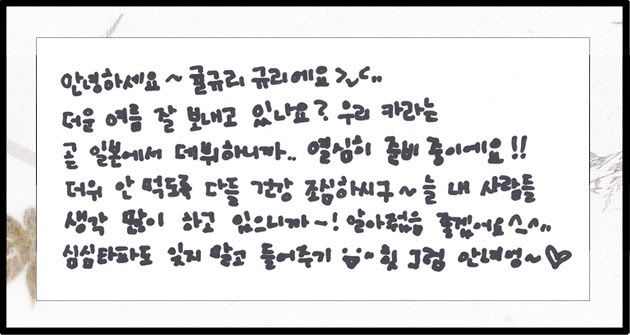 안녕하세요~ 귤규리 규리에요>_<..
더운 여름 잘 보내고 있나요? 우리 카라는
곧 일본에서 데뷔하니까.. 열심히 준비 중이에요!!
더위 안 먹도록 다들 건강 조심하시구~ 늘 내 사람들
생각 많이 하고 있으니까~! 알아줬음 좋겠어요^^..
심심타파도 잊지 말고 들어주기 힛 그럼 안녀엉~♡